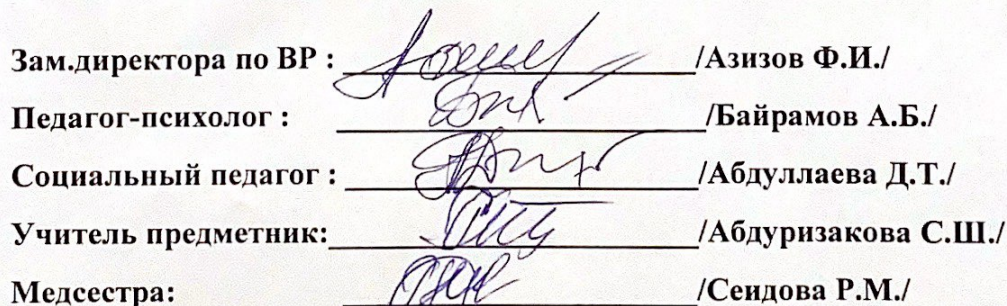 Зам.директора по ВР : /Азизов Ф.И./
Педагог-психолог : /Байрамов А.Б./
Социальный педагог : /Абдуллаева Д.Т./
Учитель предметник: /Абдуризакова С.Ш./
Медсестра: /Сеидова Р.М./